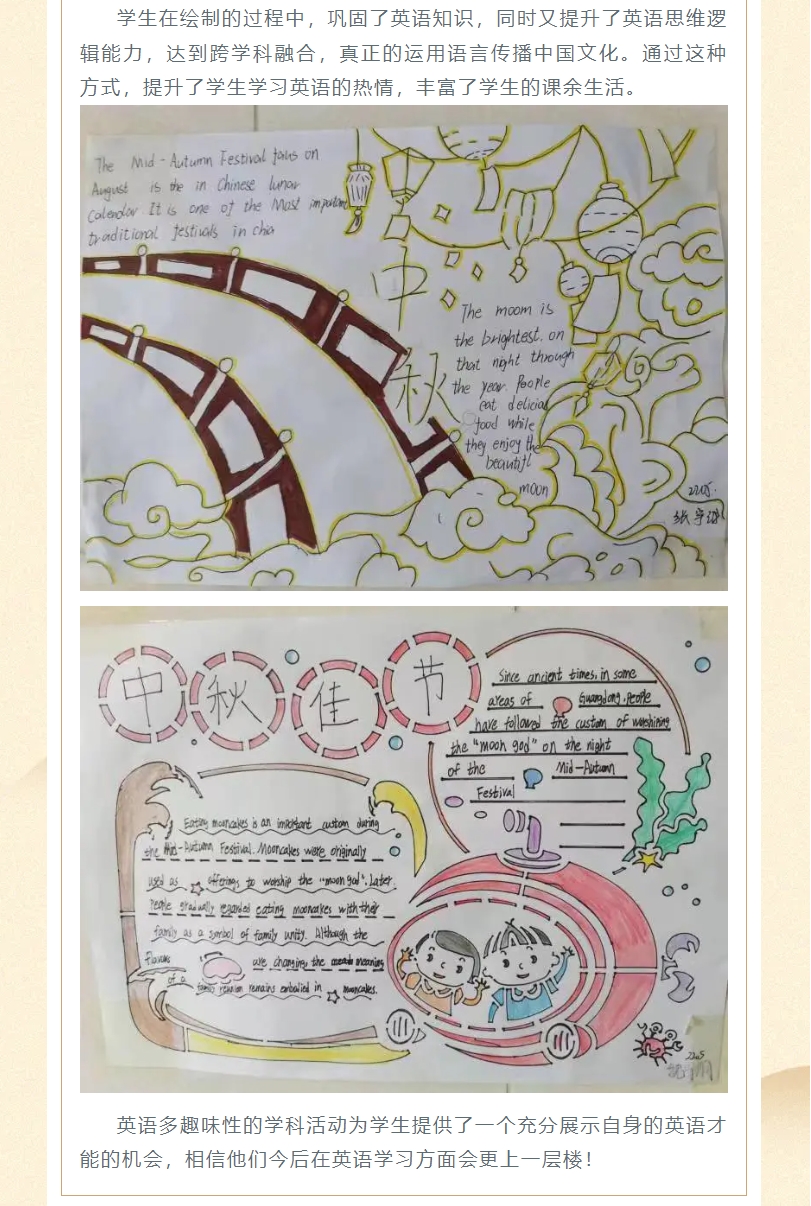 学生在绘制的过程中，巩固了英语知识，同时又提升了英语思维逻
辑能力，达到跨学科融合，真正的运用语言传播中国文化。通过这种
方式，提升了学生学习英语的热情，丰富了学生的课余生活。
The Mid-Autumn Festival falus on
August is the in Chinese lunar
Calendar It is one of the Mast important
traditional festivals in chia
中
秋
The moom is
the brightest. on
that night through
the year. People
eat delicias
food while
they enjoy the
beautifl
moon
2205.
张宇
中秋佳节
Since ancient times, in some
areas of Guangdong, People
have followed the custom of worshining
the "moon god" on the night
of the Mid-Autumn
Festival
Eating mooncakes is an important custom during
the Mid-Autumn Festival. Mooncakes were originally
used as offerings to worship the "moon god". Later,
People gradually regarded eating mooncakes with their
family as a symbol of family unity. Although the
Flavors are changing, the meaning
of a family reunion remains embalied in mooncakes.
2205
英语多趣味性的学科活动为学生提供了一个充分展示自身的英语才
能的机会，相信他们今后在英语学习方面会更上一层楼！